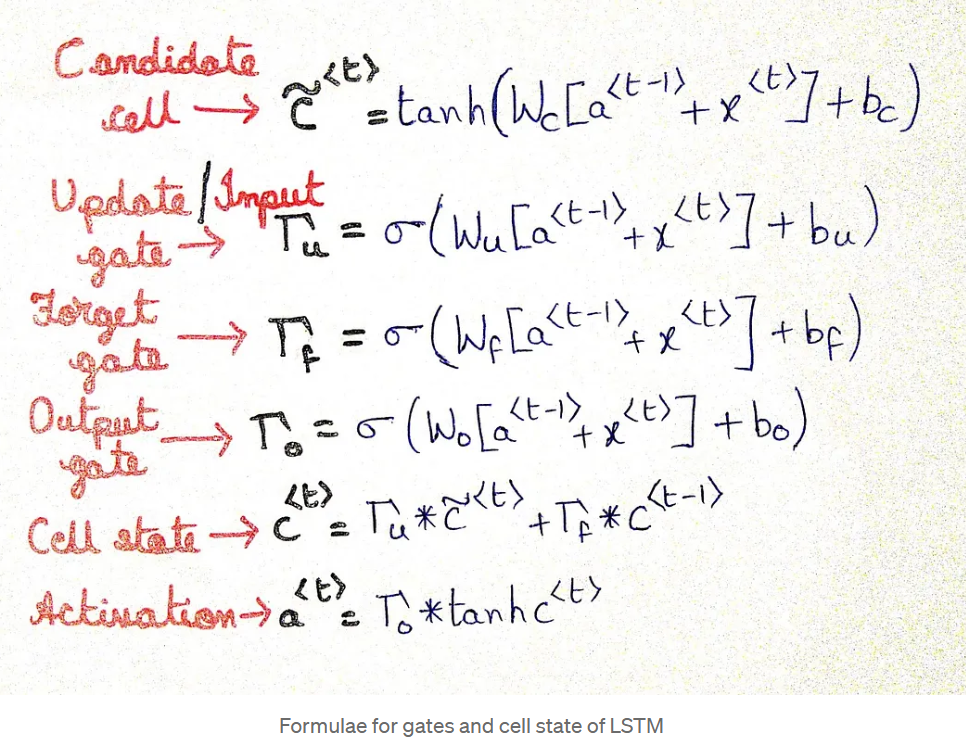 Candidate
cell → c̃^<t> = tanh(Wc[a^<t-1> + x^<t>] + bc)
Update/Input
gate → Γu = σ(Wu[a^<t-1> + x^<t>] + bu)
Forget
gate → Γf = σ(Wf[a^<t-1> + x^<t>] + bf)
Output
gate → Γo = σ(Wo[a^<t-1> + x^<t>] + bo)
Cell state → c^<t> = Γu * c̃^<t> + Γf * c^<t-1>
Activation → a^<t> = Γo * tanh c^<t>
Formulae for gates and cell state of LSTM